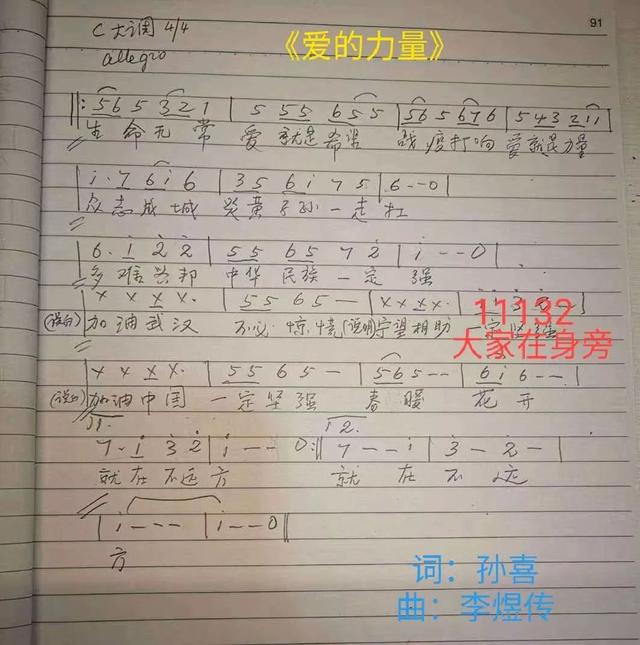 91
C大调 4/4
《爱的力量》
allegro
‖: 5 6 5 3 2 1 | 5 5 5 6 5 5 | 5 6 5 6 7 6 | 5 4 3 2 1 1 |
生命无常 爱就是希望 战疫打响 爱就是力量
i· 7 6 i 6 | 3 5 6 i 7 5 | 6 - - 0 |
众志成城 炎黄子孙一走扛
6· i 2 2 | 5 5 6 5 7 2 | i - - 0 |
多难兴邦 中华民族一定强
x x x x· | 5 5 6 5 — | x x x x· |
11132
(说白) 加油武汉 不必惊慌 (说明) 守望相助 一定
大家在身旁
x x x x· | 5 5 6 5 - | 5 6 5 - - | 6 i 6 - - |
(说白) 加油中国 一定坚强 春暖 花开
1. 12.
7· i 3 2 | i - - 0 :‖ 7 - - i | 3 - 2 - |
就在不远方 就在不远
| i - - - | i - - 0 ‖
方
词：孙喜
曲：李煜传